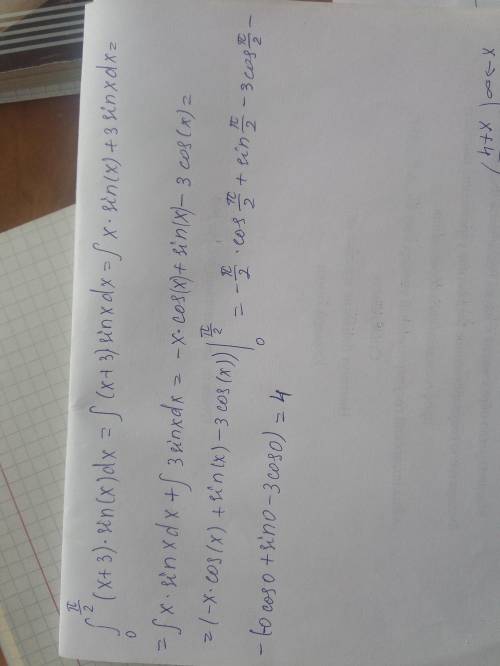 ∫₀^(π/2) (x+3)·sin(x)dx = ∫(x+3)sinxdx = ∫x·sin(x)+3sinxdx =
= ∫x·sinxdx + ∫3sinxdx = -x·cos(x)+sin(x)-3cos(x) =
= (-x·cos(x)+sin(x)-3cos(x))|₀^(π/2) = -π/2·cos π/2 + sin π/2 - 3cos π/2 -
-(-0cos0+sin0-3cos0) = 4
x→∞ (x+4